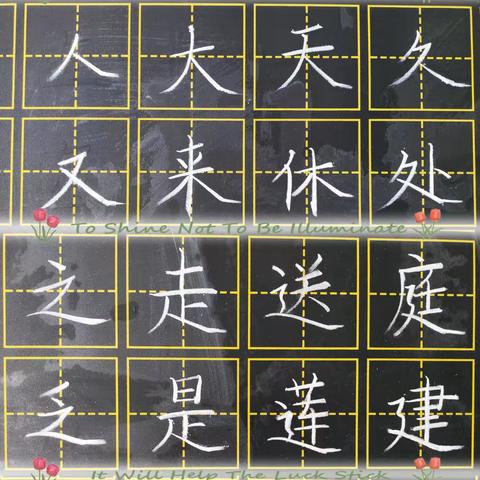 人 大 天 久
又 来 休 处
To Shine Not To Be Illuminate
之 走 送 庭
乏 是 莲 建
It Will Help The Luck Stick